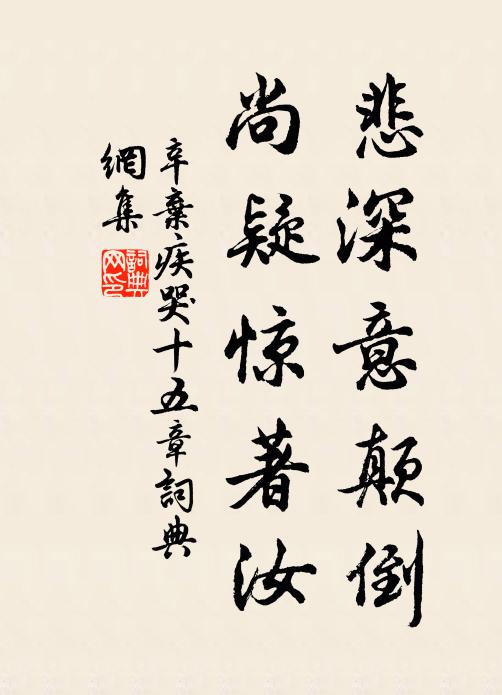 悲深意颠倒
尚疑惊著汝
辛棄疾哭十五章詞典
網集
詞典网印